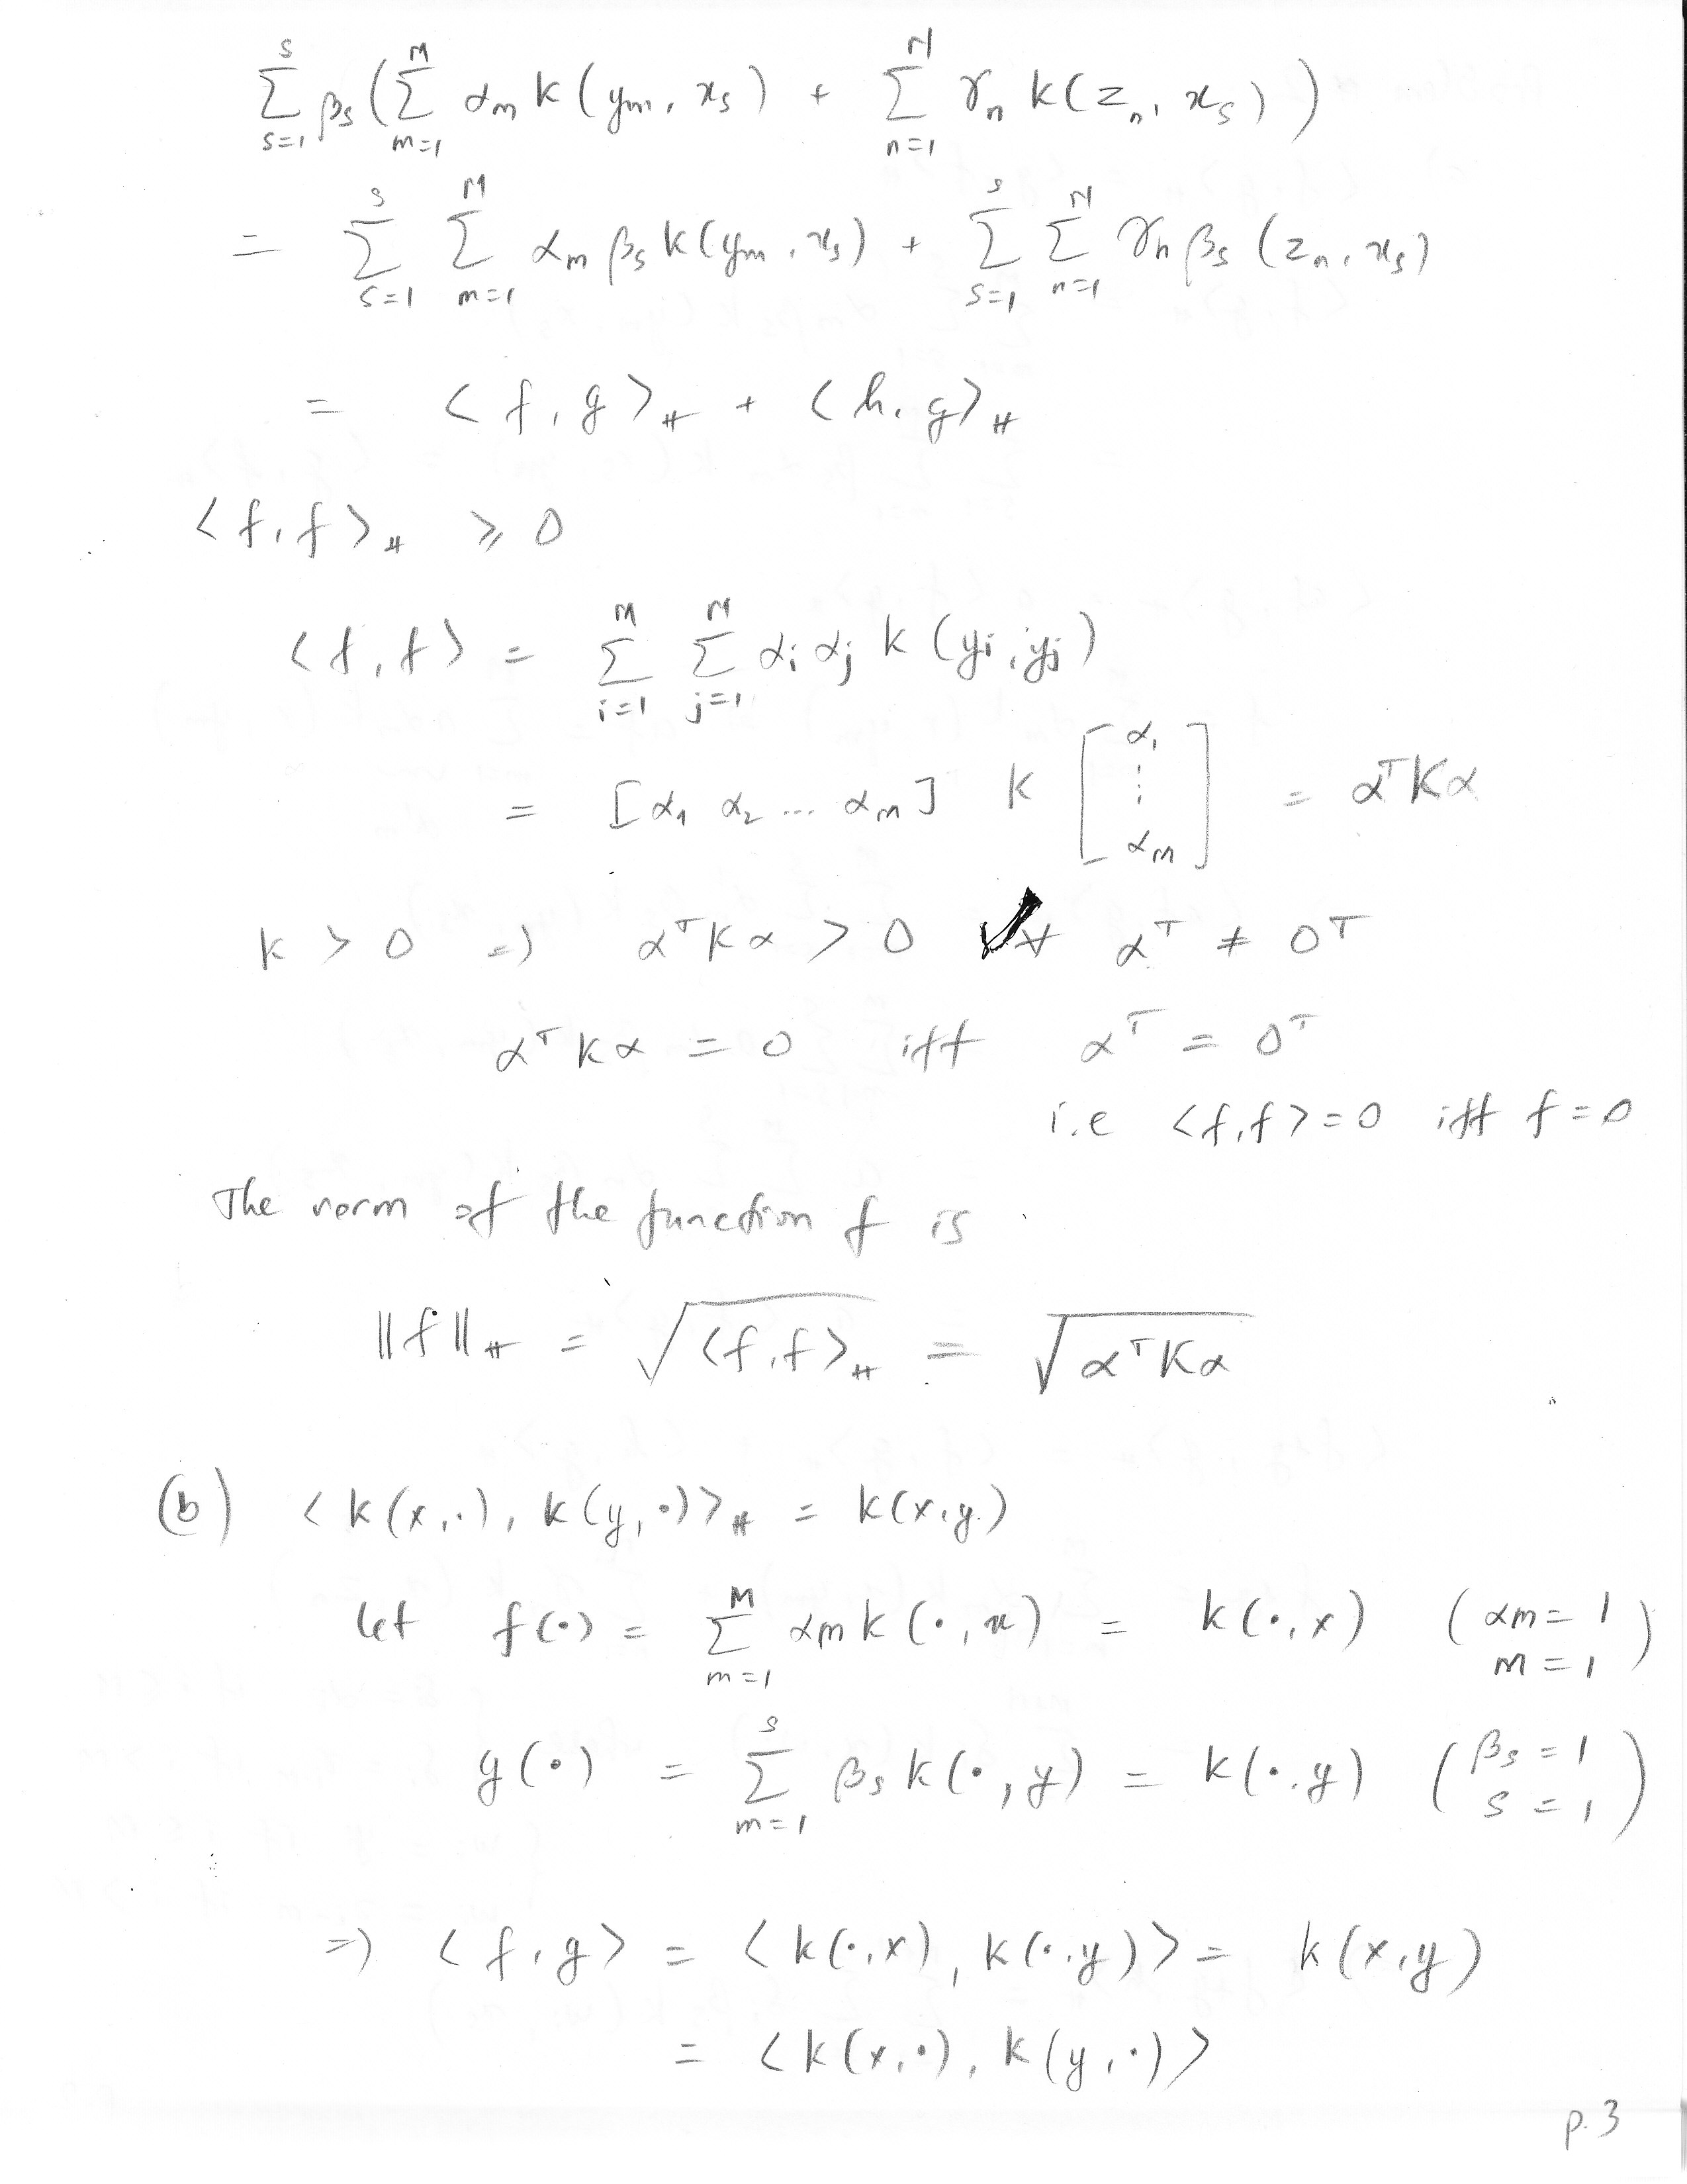 $\sum_{s=1}^{S} \beta_s \left( \sum_{m=1}^{M} \alpha_m k(y_m, x_s) + \sum_{n=1}^{N} \gamma_n k(z_n, x_s) \right)$
$= \sum_{s=1}^{S} \sum_{m=1}^{M} \alpha_m \beta_s k(y_m, x_s) + \sum_{s=1}^{S} \sum_{n=1}^{N} \gamma_n \beta_s (z_n, x_s)$
$= \langle f, g \rangle_H + \langle h, g \rangle_H$
$\langle f, f \rangle_H \geq 0$
$\langle f, f \rangle = \sum_{i=1}^{M} \sum_{j=1}^{M} \alpha_i \alpha_j k(y_i, y_j)$
$= [\alpha_1 \ \alpha_2 \ldots \alpha_m] \ K \begin{bmatrix} \alpha_1 \\ \vdots \\ \alpha_m \end{bmatrix} = \alpha^T K \alpha$
$K > 0 \Rightarrow \alpha^T K \alpha > 0 \ \forall \ \alpha^T \neq 0^T$
$\alpha^T K \alpha = 0$ iff $\alpha^T = 0^T$
i.e $\langle f, f \rangle = 0$ iff $f = 0$
The norm of the function f is
$\|f\|_H = \sqrt{\langle f, f \rangle_H} = \sqrt{\alpha^T K \alpha}$
(b) $\langle k(x, \cdot), k(y, \cdot) \rangle_H = k(x, y)$
let $f(\cdot) = \sum_{m=1}^{M} \alpha_m k(\cdot, x) = k(\cdot, x) \quad \begin{pmatrix} \alpha_m = 1 \\ M = 1 \end{pmatrix}$
$g(\cdot) = \sum_{m=1}^{S} \beta_s k(\cdot, y) = k(\cdot, y) \quad \begin{pmatrix} \beta_s = 1 \\ S = 1 \end{pmatrix}$
$\Rightarrow \langle f, g \rangle = \langle k(\cdot, x), k(\cdot, y) \rangle = k(x, y)$
$= \langle k(x, \cdot), k(y, \cdot) \rangle$
p.3